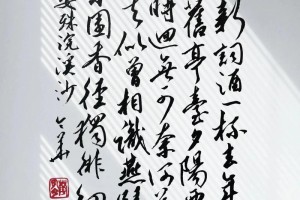 新詞酒一杯去年
舊亭臺夕陽西
時迴無可奈何花
去似曾相識燕歸
園香徑獨徘徊
晏殊浣溪沙